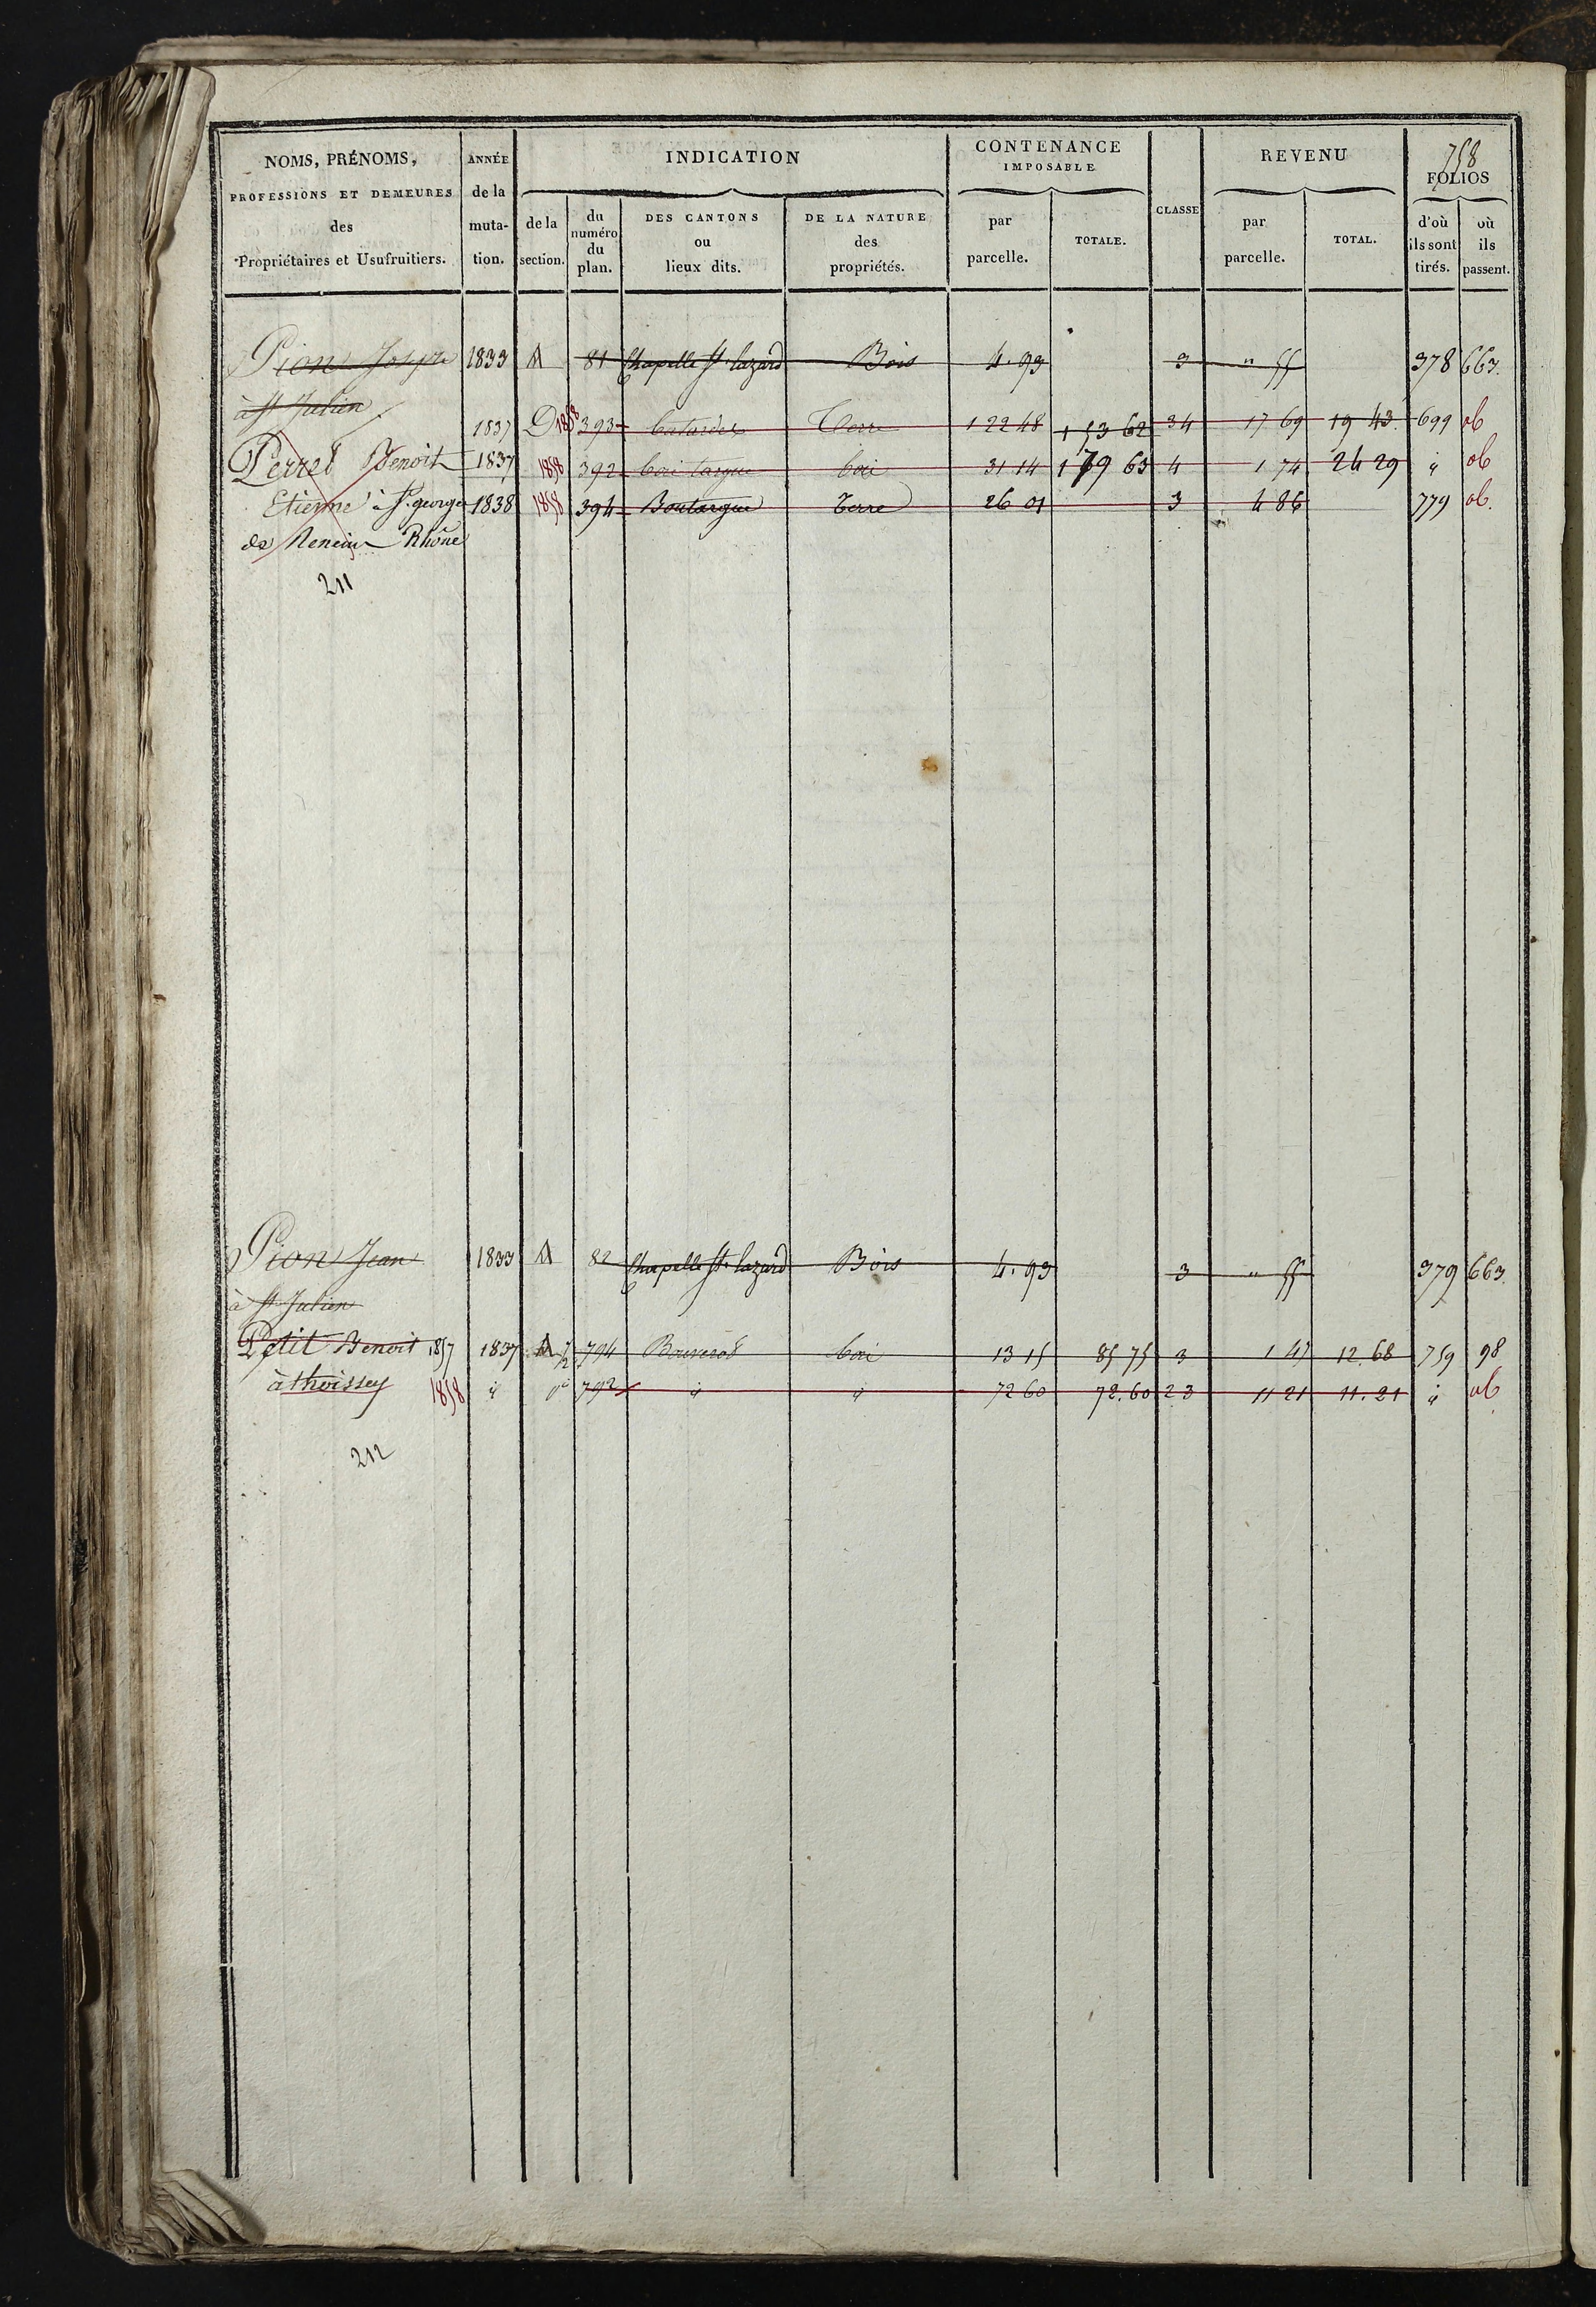 758
NOMS, PRÉNOMS, PROFESSIONS ET DEMEURES des Propriétaires et Usufruitiers.
ANNÉE de la muta- tion.
INDICATION
de la section.
du numéro du plan.
DES CANTONS ou lieux dits.
DE LA NATURE des propriétés.
CONTENANCE IMPOSABLE
par parcelle.
TOTALE.
CLASSE
REVENU
par parcelle.
TOTAL.
FOLIOS
d'où ils sont tirés.
où ils passent.
Pion Joseph 1833 A 81 Chapelle St. lazard Bois 4.93 3 " 55 378 663.
à St Julien
1837 D 1858 393 Terre 1 22 48 1 53 62 34 17 69 19 43 699 ob
Perret Benoit 1837 1858 392 boi 31 14 1 79 63 4 1 74 24 29 " ob
Etienne à St. georges 1838 1858 394 Boutargue Terre 26 01 3 4 86 779 ob.
de Reneins Rhône
211
Pion Jean 1833 A 82 Chapelle St. lazard Bois 4.93 3 " 55 379 663.
à St Julien
Petit Benoit 1857 1837 A 794 boi 13 15 85 75 3 1 47 12.68 759 98
à thoissey 1858 " 792 " " 72 60 72.60 2 3 11 21 11.21 " ob
212